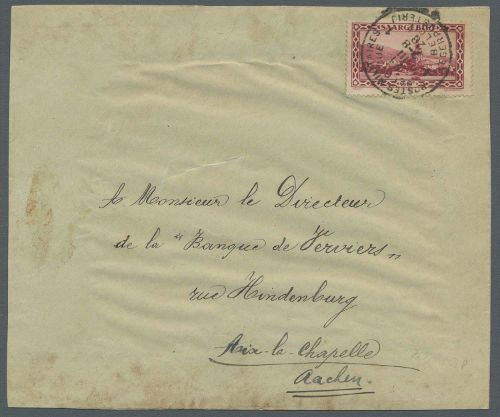 SAARGEBIET
POSTES MILITAIRES
à Monsieur le Directeur
de la "Banque de Verviers"
rue Hindenburg
Aix-la-Chapelle
Aachen.